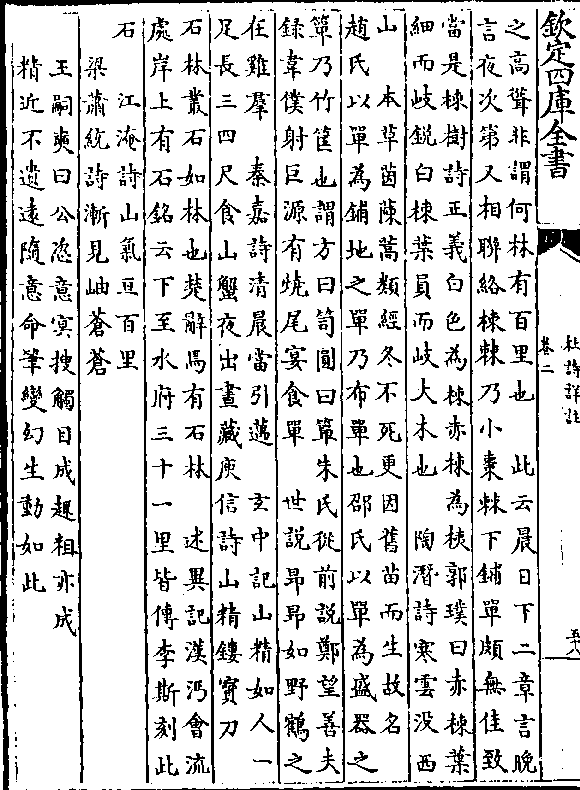 欽定四庫全書
杜詩詳註
卷二
之高聳非謂何林有百里也　此云晨日下二章言晚
言夜次第又相聯絡棟棘乃小棗棘下鋪單頗無佳致
當是棟樹詩正義白色為棟赤棟為桋郭璞曰赤棟葉
細而岐銳白棟葉員而岐大木也　陶潛詩寒雲没西
山　本草茵陳蒿類經冬不死更因舊苗而生故名
趙氏以單為鋪地之單乃布單也邵氏以單為盛器之
簞乃竹筐也謂方曰笥圓曰簞朱氏從前説鄭望善夫
録韋僕射巨源有燒尾宴食單　世説昂昂如野鶴之
在雞羣　秦嘉詩清晨當引邁　玄中記山精如人一
足長三四尺食山蟹夜出晝藏庾信詩山精鏤寶刀
石林叢石如林也楚辭焉有石林　述異記漢沔會流
處岸上有石銘云下至水府三十一里皆傳李斯刻此
石　江淹詩山氣亘百里
梁蕭統詩漸見岫蒼蒼
王嗣奭曰公恣意冥搜觸目成趣粗亦成
精近不遺遠隨意命筆變幻生動如此